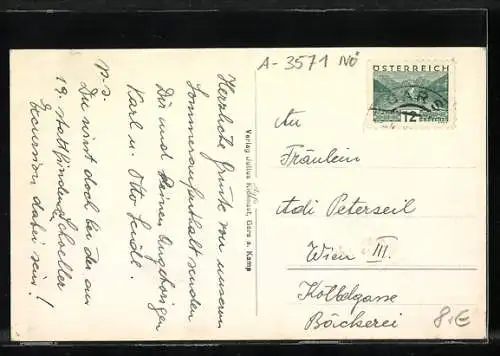 A-3571 NÖ
ÖSTERREICH
GARS
12 Groschen
An
Fräulein
Adi Peterseil
Wien III.
Kolbelgasse
Bäckerei
8.-€
Verlag Julius Kühlmost, Gars a. Kamp
Herzliche Grüße von unserem
Sommeraufenthalt senden
Dir und Deinen Angehörigen
Karl u. Otto
p.s.
Du wirst doch bei der am
19. stattfindend
Excursion dabei sein!